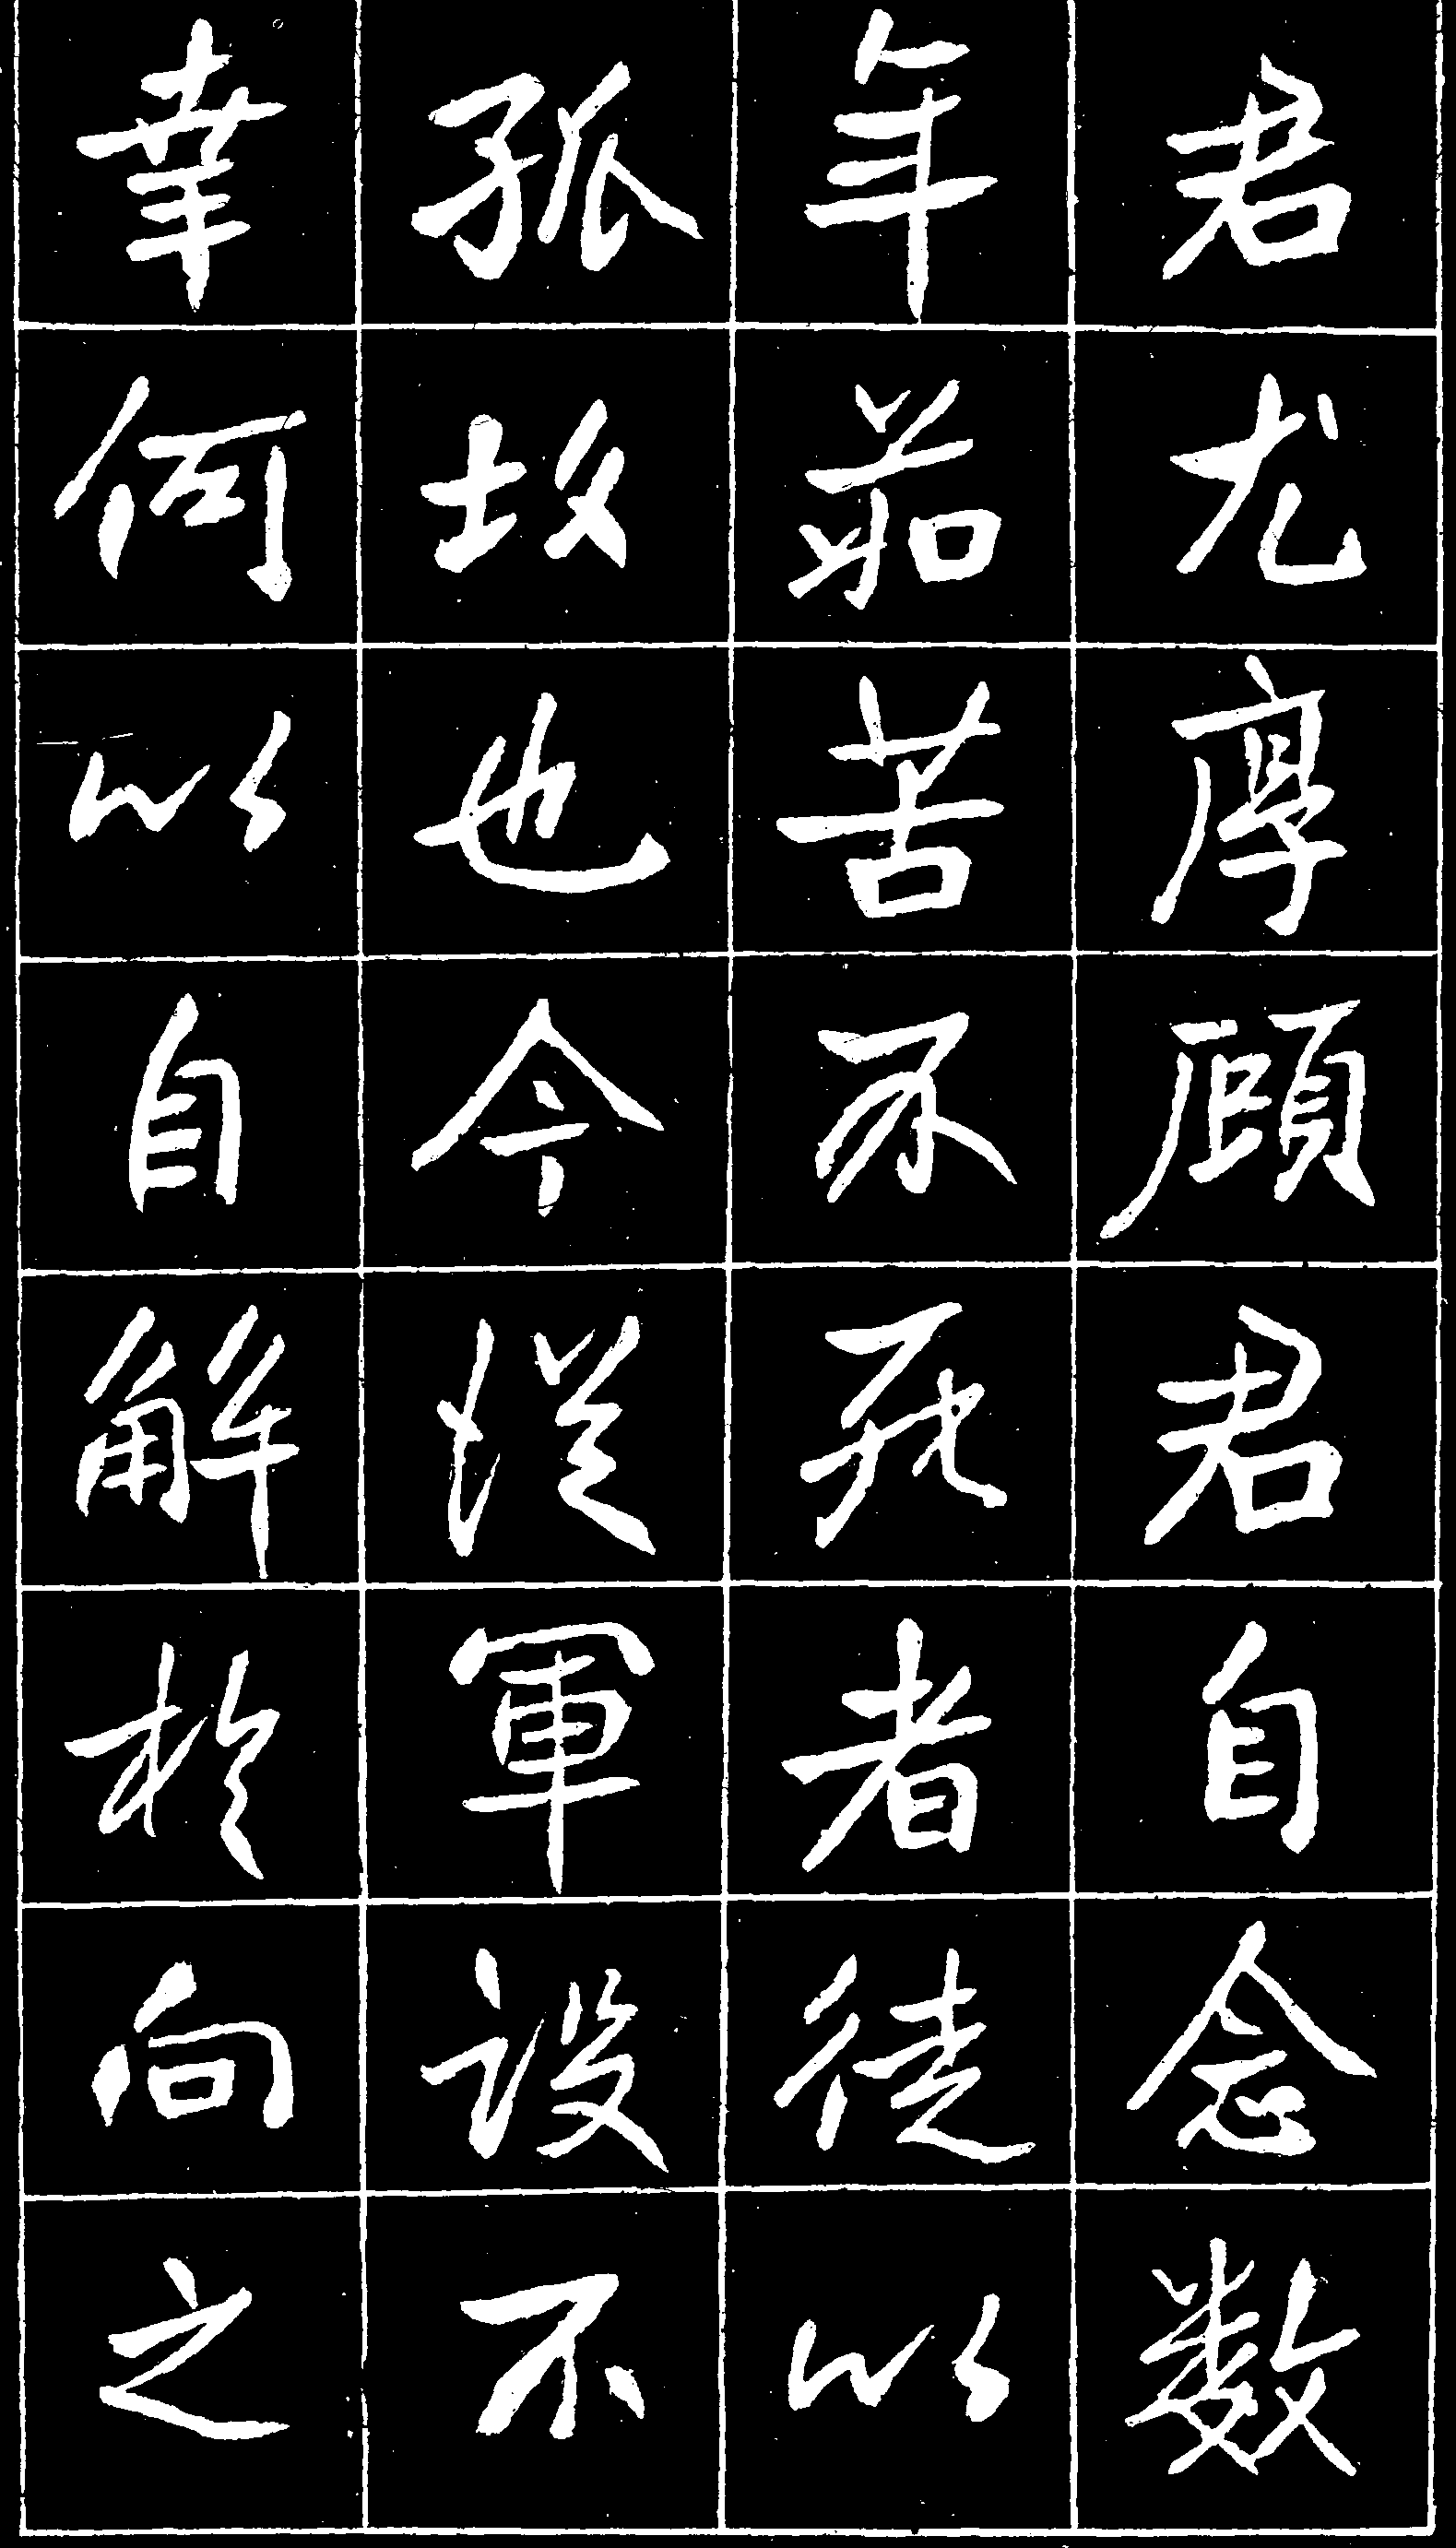 君尤厚顧君自念數
年茹苦不死者徒以
孤故也今從軍設不
幸何以自解於向之